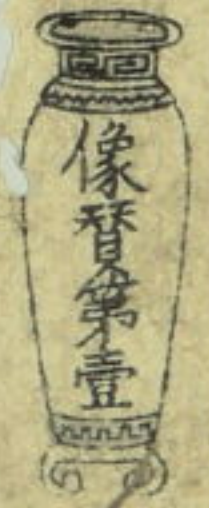 像賛第壹